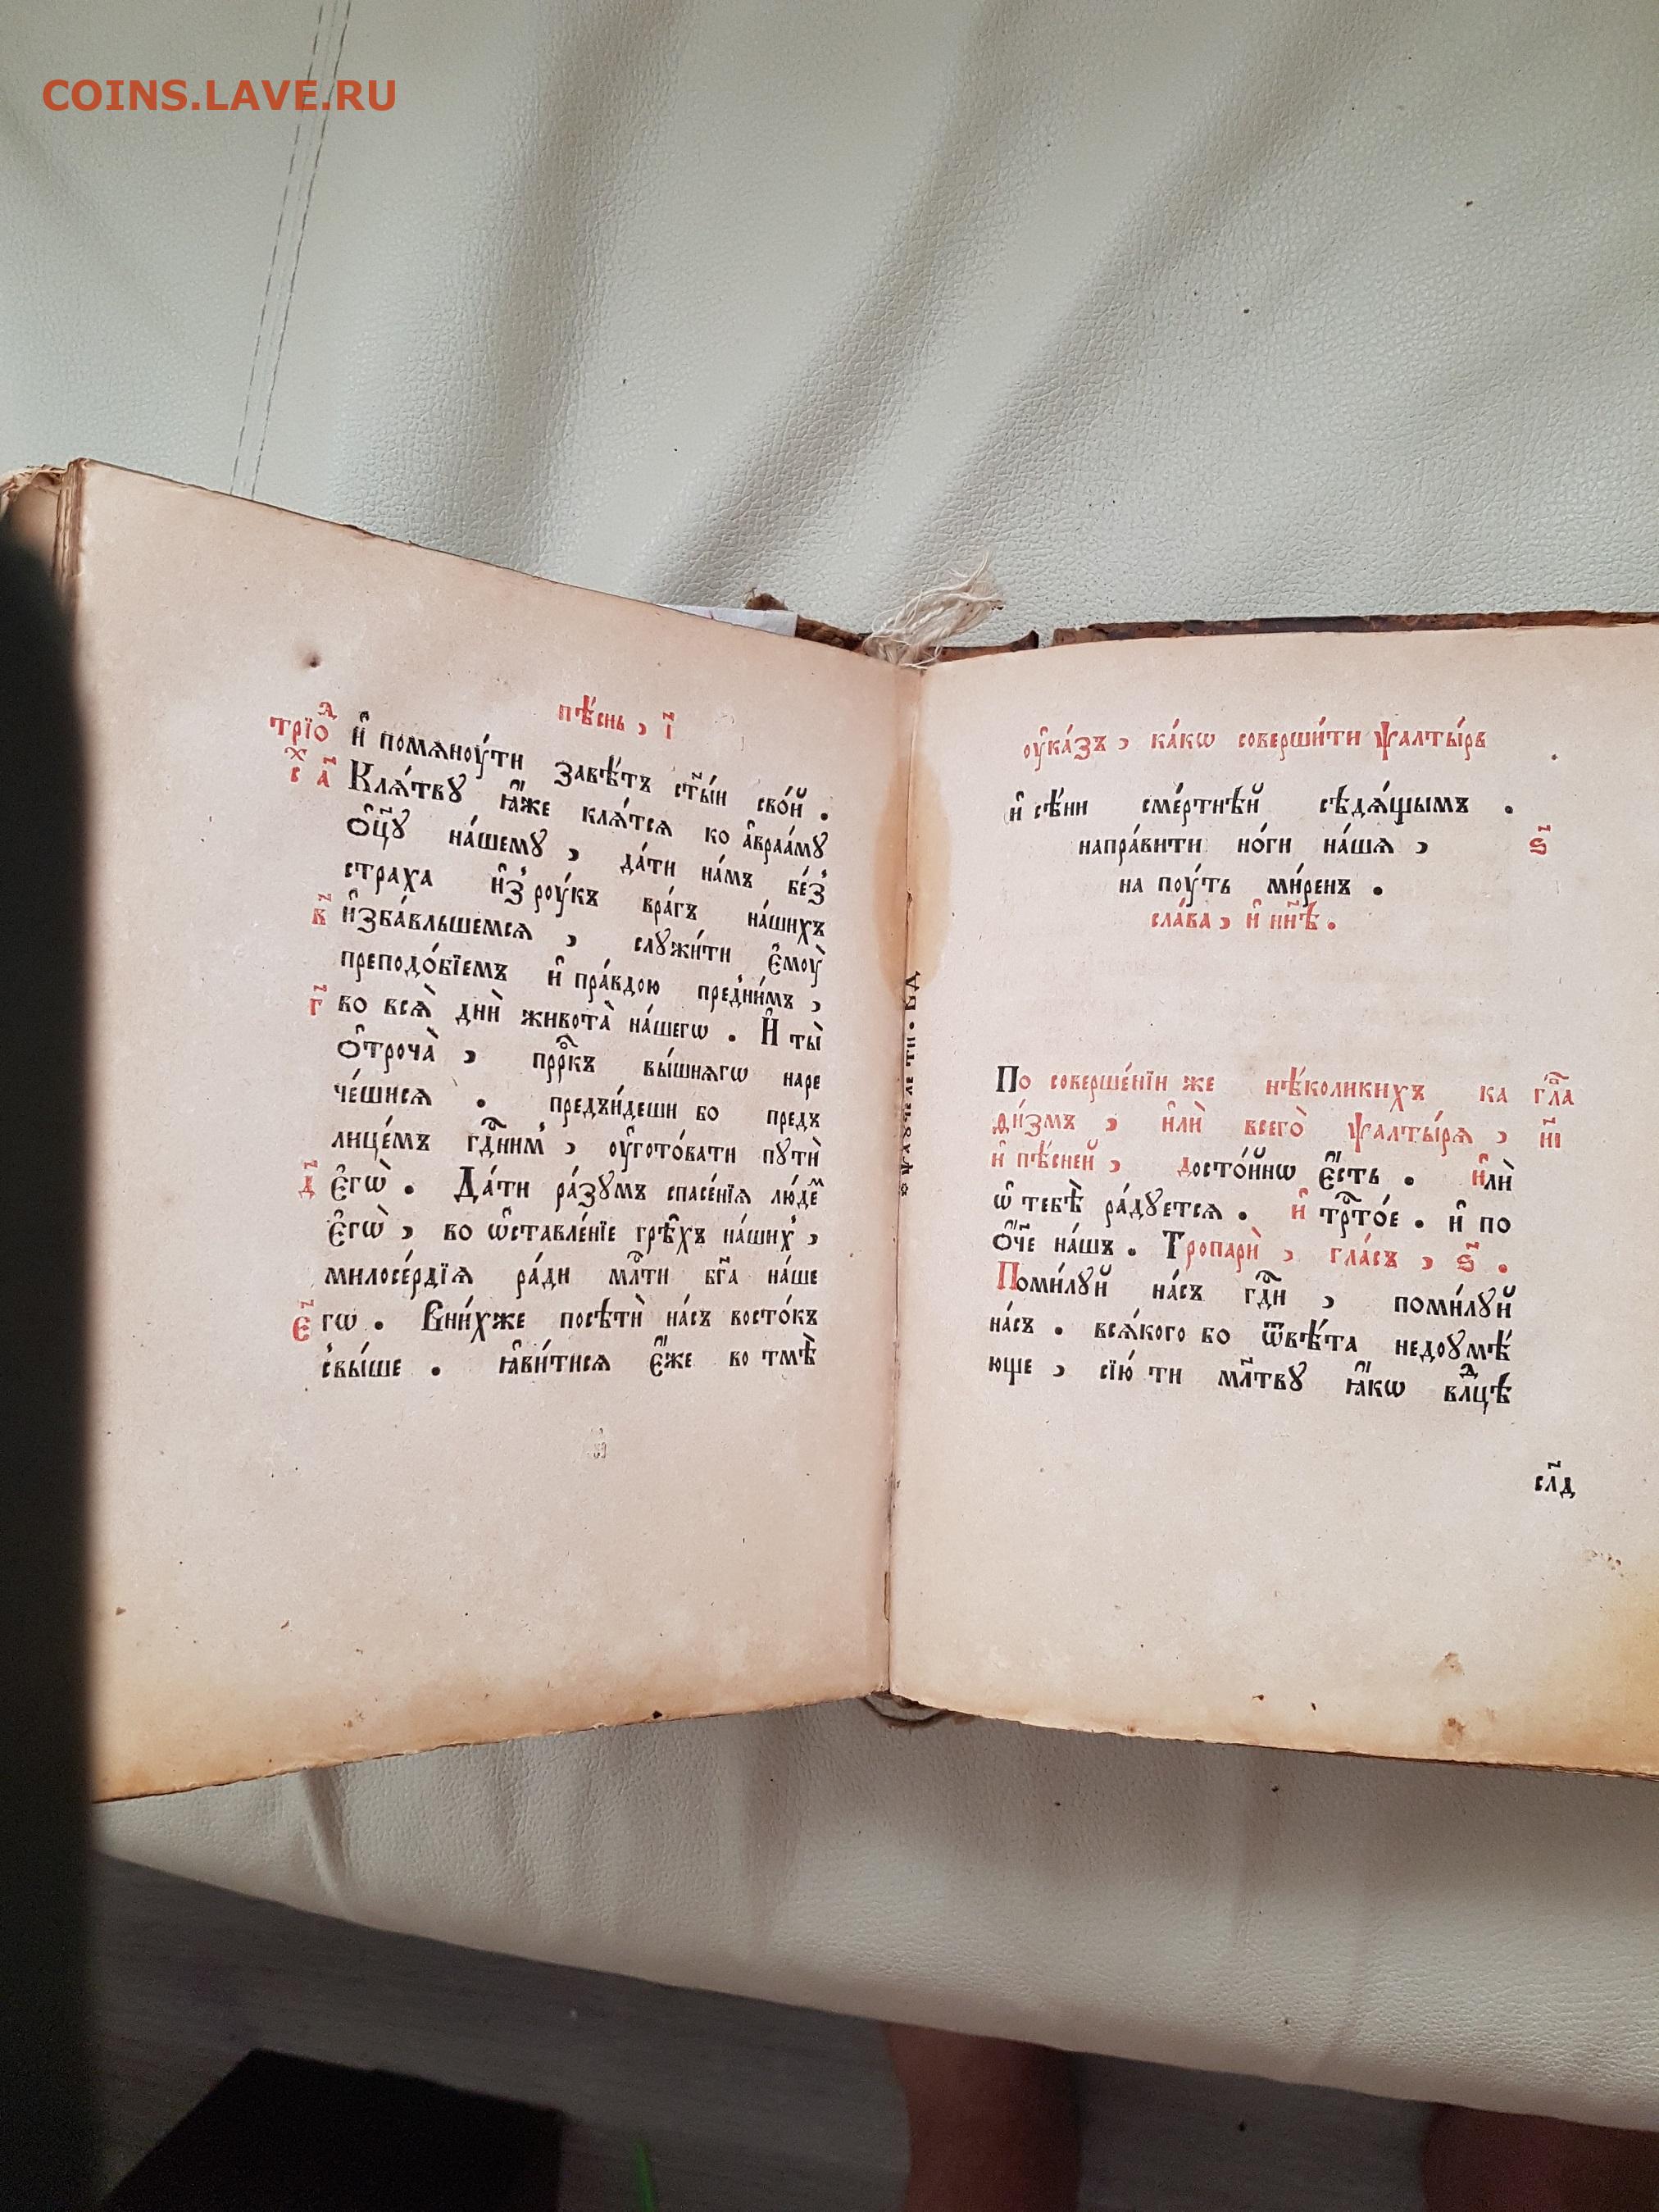 COINS.LAVE.RU
пѣ́снь, і҃
трїѡⷣ и҆ помѧноу́ти завѣ́тъ ст҃ы́и сво́й .
сⷯ а҃ Клѧ́твꙋ ꙗ҆́же клѧ́тсѧ ко а҆враа́мꙋ
ѻ҆ц҃ꙋ̀ на́шемꙋ , да́ти на́мъ бе́з̾
страха и҆з̾ роу́къ вра́гъ на́шихъ
в҃ и҆зба́вльшемсѧ , слꙋжи́ти є҆моу̀
преподо́бїемъ и҆ пра́вдою пред̾ни́мъ ,
г҃ во всѧ̀ днѝ живота̀ на́шегѡ . И҆ ты̀
ѻ҆троча̀ , прⷪ҇ркъ вы́шнѧгѡ наре
че́шисѧ . пред̾и́деши бо предъ
лице́мъ гдⷭ҇ним̾ , оу҆гото́вати пꙋтѝ
д҃ є҆гѡ̀ . Да́ти ра́зꙋмъ спасе́нїѧ лю́деⷨ
є҆гѡ̀ , во ѡ҆ставле́нїе грѣ̑хъ на́ших̾ ,
милосе́рдїѧ ра́ди млⷭ҇ти бг҃а на́ше
є҃ гѡ . Вни́хже посѣтѝ на́съ восто́къ
свы́ше . ꙗ҆ви́тисѧ є҆́же во тмѣ̀
оу҆ка́зъ , ка́кѡ соверши́ти ѱалты́рь
и҆ сѣ́ни сме́ртнѣй сѣдѧ́щымъ .
напра́вити но́ги на́шѧ , ѕ҃
на поу́ть ми́ренъ .
сла́ва , и҆ нн҃ѣ .
По соверше́нїи же нѣ́коликихъ ка гл҃а
ди́змъ , и҆лѝ всего̀ ѱалты́рѧ , н҃і
и҆ пѣ́сней , досто́йнѡ є҆́сть . и҆лѝ
ѡ҆ тебѣ̀ ра́дꙋетсѧ . и҆ трⷭ҇то́е . и҆ по
ѻ҆́ч҃е на́шъ . Тропарѝ , гла́съ , ѕ҃ .
Поми́лꙋй на́съ гдⷭ҇и , поми́лꙋй
на́съ . всѧ́кого бо ѿвѣ́та недоꙋмѣ́
юще , сїю́ ти мл҃твꙋ ꙗ҆́кѡ влⷣцѣ
сл҃д